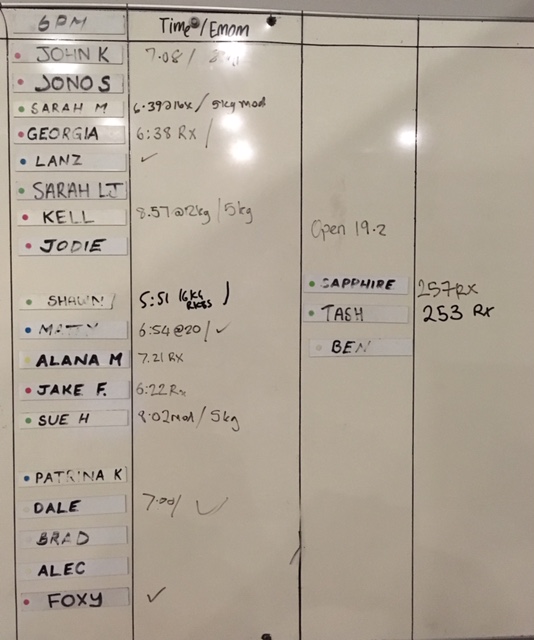 6PM Time/Emom
JOHN K 7.08/
JONO S
SARAH M 6.39 / 5kg mod
GEORGIA 6:38 Rx /
LANZ ✓
SARAH LJ
KELL 8.57@2kg/5kg
JODIE
Open 19.2
SAPPHIRE 257 Rx
SHAWN 5:51
TASH 253 Rx
MATTY 6:54@20/✓
BEN
ALANA M 7.21 Rx
JAKE F. 6:22 Rx
SUE H 8:02mod/5kg
PATRINA K
DALE 7.00/ ✓
BRAD
ALEC
FOXY ✓